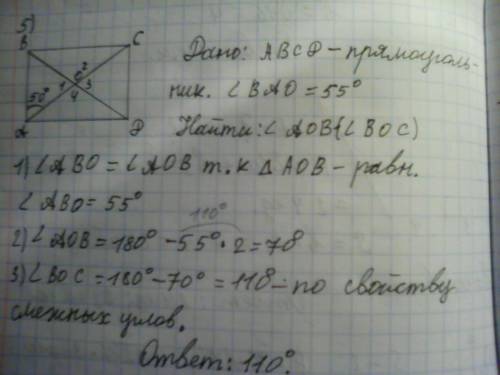 5)
B C
O 2
1 3
4
50°
A D
Дано: ABCD – прямоуголь-
ник. ∠BAO = 55°
Найти: ∠AOB(∠BOC)
1) ∠ABO = ∠AOB т.к △AOB – равн.
∠ABO = 55°
110°
2) ∠AOB = 180° – 55° · 2 = 70°
3) ∠BOC = 180° – 70° = 110 – по свойству
смежных углов.
Ответ: 110°.